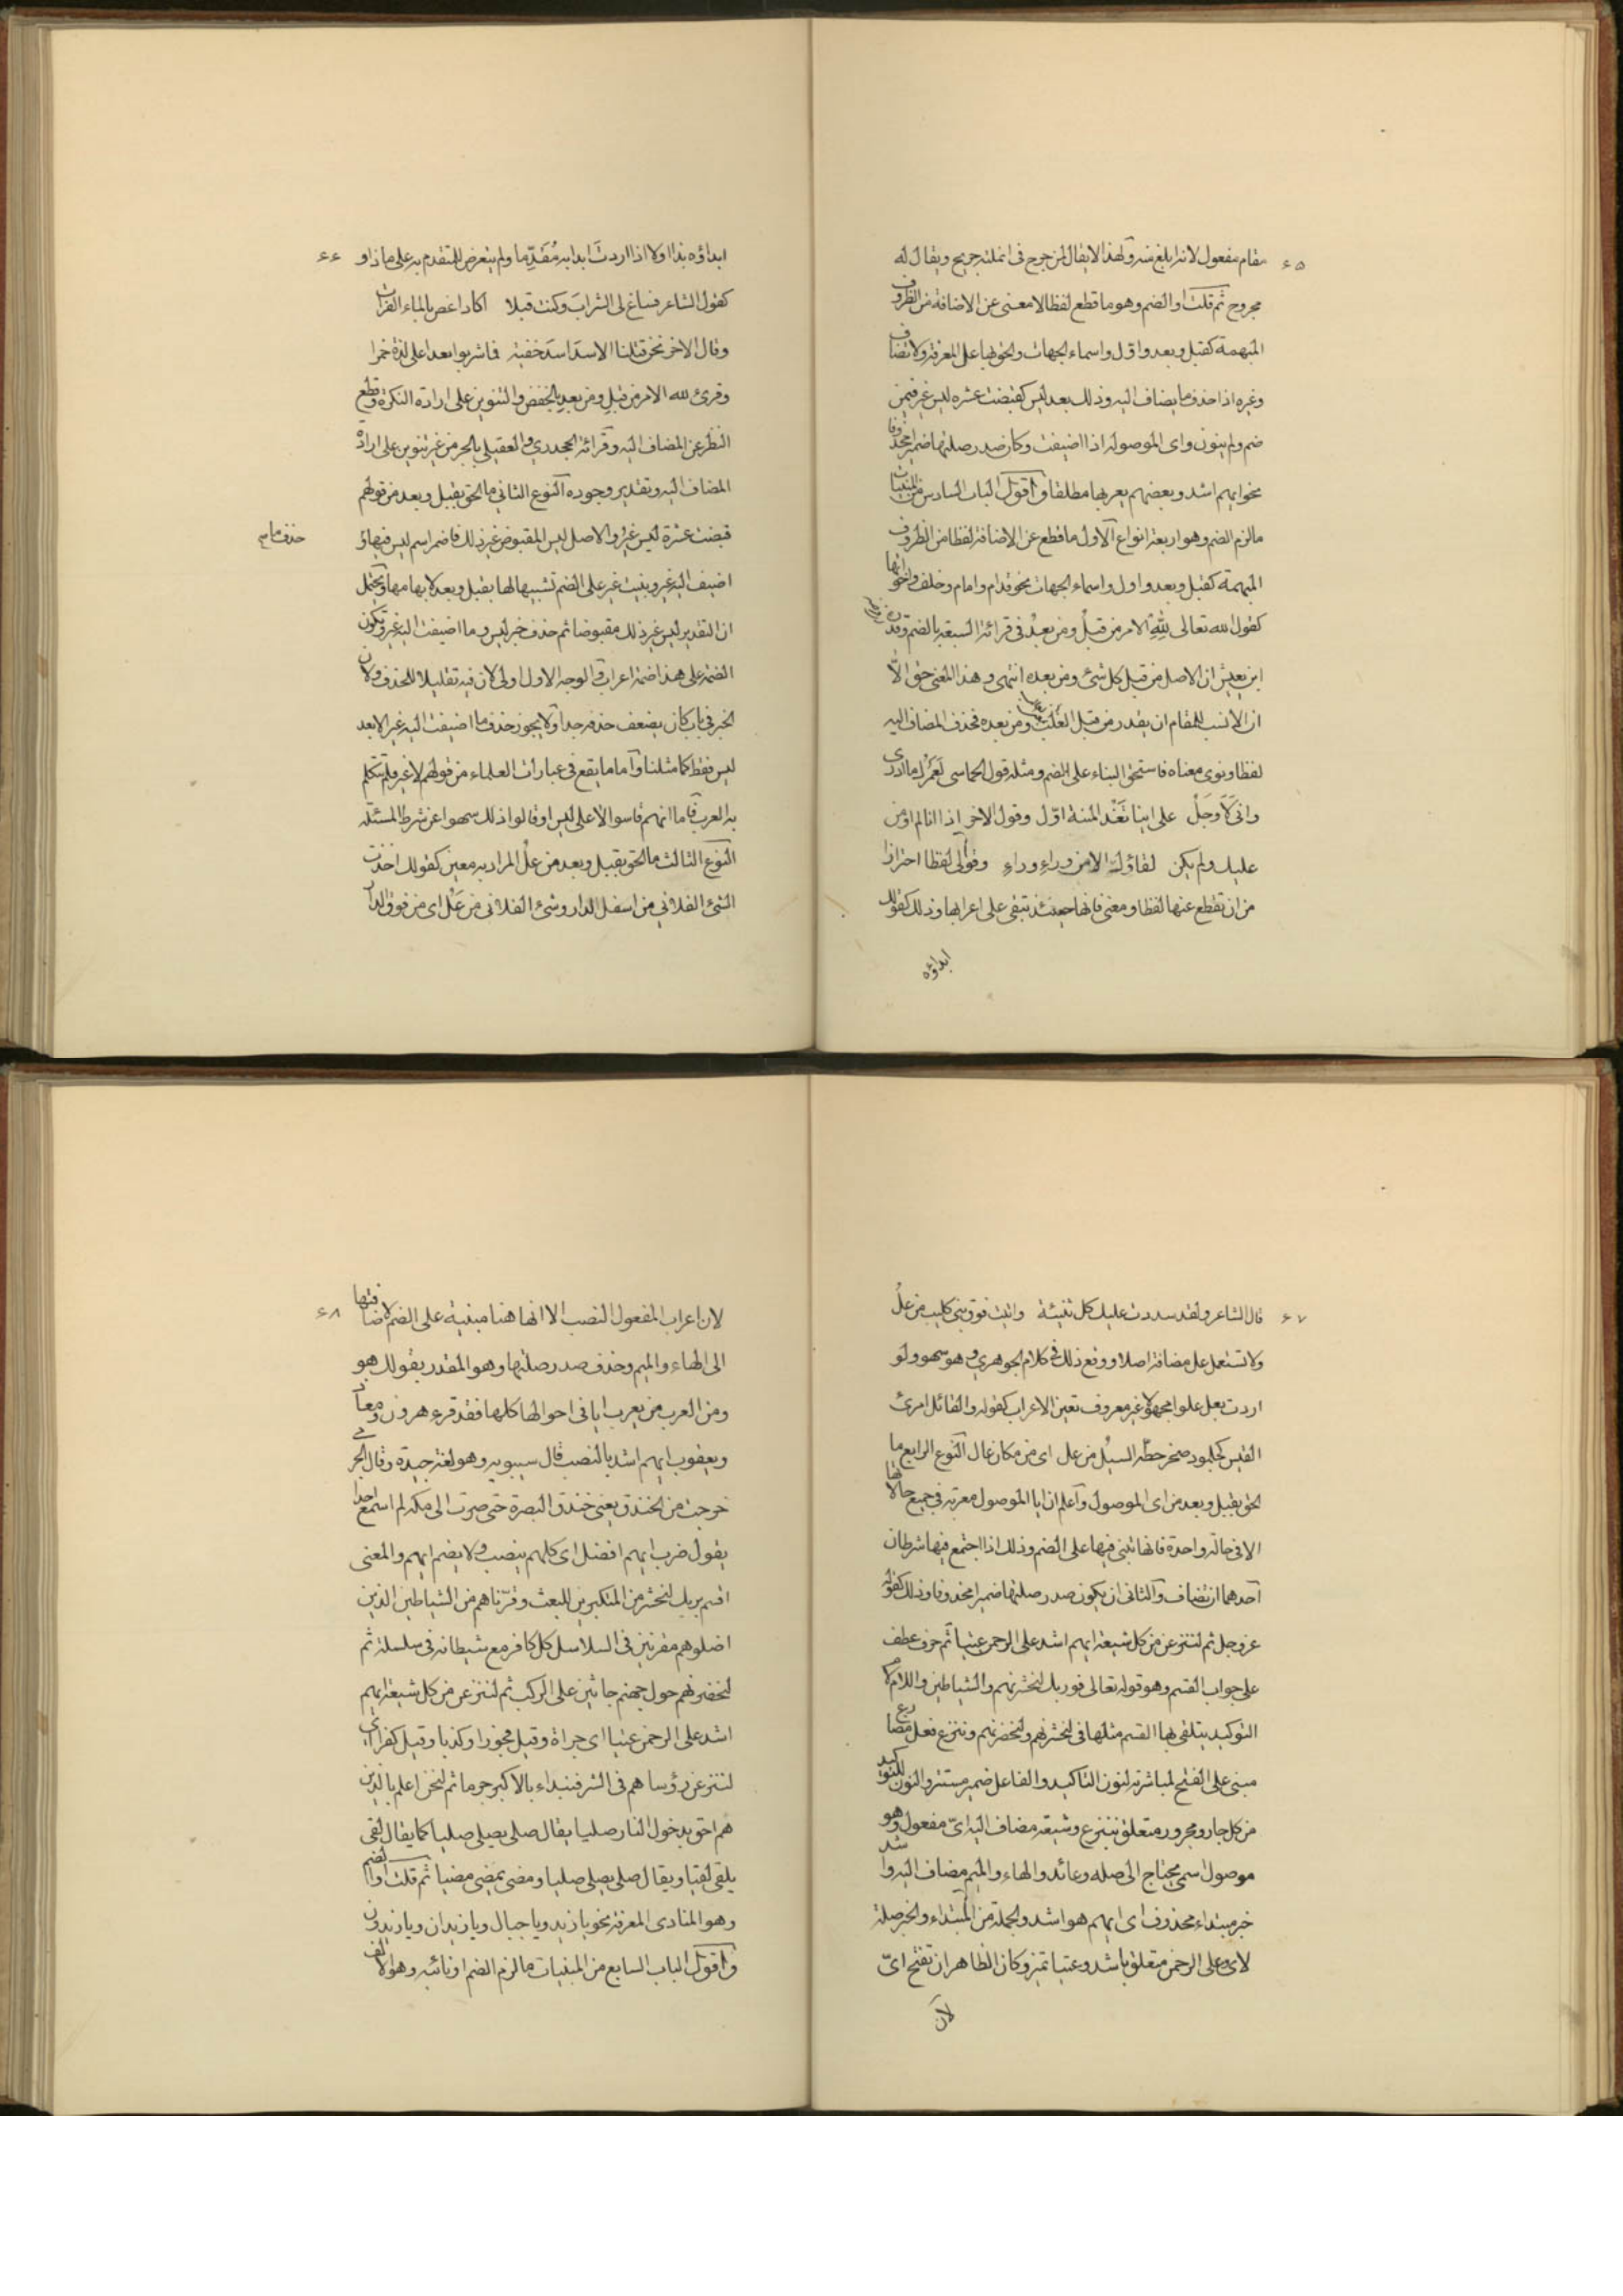 ٦٥
مقام مفعول لانه ابلغ منه ولهذا لا يقال لمن جرح فى انملته جريح ويقال له
مجروح ثم قلت او الضم وهو ما قطع لفظا لا معنى عن الاضافة من الظروف
المبهمة كقبل وبعد واول واسماء الجهات والحق بها عل المعرفة ولا تضاف
وغيره اذا حذف ما يضاف اليه وذلك بعد ليس كقبضت عشره ليس غير فيمن
ضم ولم ينون واى الموصوله اذا اضيفت وكان صدر صلتها ضميرا محذوفا
نحو ايهم اشد وبعضهم يعربها مطلقا واقول الباب السادس من المبنيات
ما لزم الضم وهو اربعة انواع الاول ما قطع عن الاضافة لفظا من الظروف
المبهمة كقبل وبعد واول واسماء الجهات نحو قدام وامام وخلف واخواتها
كقول الله تعالى لله الامر من قبلُ ومن بعدُ فى قرائة السبعة بالضم وقدره
ابن يعيش ان الاصل من قبل كل شئ ومن بعده انتهى وهذا المعنى حق الّا
ان الانسب للمقام ان يقدر من قبل الغلب ومن بعده فحذف المضاف اليه
لفظا ونوى معناه فاستحق البناء على الضم ومثله قول الحماسى لَعَمْرُك ما ادرى
وانى لَاَوجَلُ على اينا تَغْدُ المنية اوّل وقول الاخر اذا انا لم اؤمن
عليك ولم يكن لقاؤك الا من وراءِ وراءِ وقولى لفظا احترازا
من ان تقطع عنها لفظا ومعنى فانها حينئذ تبقى على اعرابها وذلك كقولك
ابداؤه
٦٦
ابداؤه بذا اولا اذا اردتَ ابدا به مُقَدِّما ولم يتعرض للتقدم به على ماذا و
كقول الشاعر فساغ لى الشرابَ وكنت قبلا اكاد اغص بالماء الفرات
وقال الاخر نحن قتلنا الاسدَ اسدَ خفيه فما شربوا بعدا على لذة خمرا
وقرئ لله الامر من قبلٍ ومن بعدٍ بالخفض والتنوين على ارادة النكرة وقطع
النظر عن المضاف اليه وقرائة الجحدري والعقيلي بالجر من غير تنوين على ارادة
المضاف اليه وتقدير وجوده النوع الثاني ما الحق بقبل وبعد من قولهم
قبضت عشرة ليس غير والاصل ليس المقبوض غير ذلك فاضمر اسم ليس فيها و
حذف ما
اضيف اليه غير وبنيت غير على الضم تشبيها لها بقبل وبعد لابهامها ويحتمل
ان التقدير ليس غير ذلك مقبوضا ثم حذف خبر ليس وما اضيفت اليه غير وتكون
الضمة على هذا ضمة اعراب والوجه الاول اولى لان فيه تقليلا للحذف ولان
الخبر فى باب كان يضعف حذفه جدا ولا يجوز حذف ما اضيفت اليه غير الا بعد
ليس فقط كما مثلنا واما ما يقع فى عبارات العلماء من قولهم لا غير فلم تتكلم
به العرب فاما انهم قاسوا لا على ليس او قالوا ذلك سهوا عن شرط المسئلة
النوع الثالث ما الحق بقبل وبعد من علُ المراد به معين كقولك اخذت
الشئ الفلانى من اسفل الدار وشئ الفلانى من عَلُ اى من فوق الدار
٦٧
قال الشاعر ولقد سددت عليك كل ثنيئة واتيت فوق بنى كليب من علُ
ولا تستعمل عل مضافة اصلا ووقع ذلك فى كلام الجوهري وهو سهو ولو
اردت بعل علوا مجهولا غير معروف تعين الاعراب كقوله والقائل امرئ
القيس كجلمود صخر حطّه السيُل من عل اى من مكان عال النوع الرابع ما
الحق بقبل وبعد من اى الموصول واعلم ان ايا الموصول معربة فى جميع حالاتها
الا فى حالة واحدة فانها تبنى فيها على الضم وذلك اذا اجتمع فيها شرطان
احدهما ان تضاف والثانى ان يكون صدر صلتها ضميرا محذوفا وذلك كقوله
عز وجل ثم لننزعن من كل شيعة ايهم اشد على الرحمن عتيا ثم حرف عطف
على جواب القسم وهو قوله تعالى فوربك لنحشرنهم والشياطين واللام لام
التوكيد يتلقى بها القسم مثلها فى لنحشرنهم ولنحضرنهم وننزع فعل مضارع
مبنى على الفتح لمباشرته لنون التاكيد والفاعل ضمير مستتر والنون للتوكيد
من كل جار ومجرور متعلق بننزع وشيعة مضاف اليه اىّ مفعول وهو
موصول اسمى يحتاج الى صله وعائد والهاء والميم مضاف اليه واشد
خبر مبتداء محذوف اى ايهم هو اشد والجملة من المبتداء والخبر صلة
لاى وعلى الرحمن متعلق باشد وعتيا تميز وكان الظاهر ان تفتح اىّ
لان
٦٨
لان اعراب المفعول النصب الا انها هنا مبنية على الضم لاضافتها
الى الهاء والميم وحذف صدر صلتها وهو المقدر بقولك هو
ومن العرب من يعرب ايا فى احوالها كلها فقد قرء هرون ومعاذ
ويعقوب ايهم اشد بالنصب قال سيبويه وهو لغة جيدة وقال الجرمى
خرجت من الخندق يعنى خندق البصرة حتى صرت الى مكه لم اسمع احدا
يقول ضرب ايهم افضل اى كلهم ينصب ولا يضم ايهم والمعنى
اقسم بربك لنحشرن المنكرين للبعث وقرناهم من الشياطين الذين
اضلوهم مقرنين فى السلاسل كل كافر مع شيطانه فى سلسلة ثم
لنحضرنهم حول جهنم جاثين على الركب ثم لننزعن من كل شيعة ايهم
اشد على الرحمن عتيا اى جراة وقيل فجورا وكذبا وقيل كفرا اى
لننزعن رؤساهم فى الشر فنبداء بالاكبر جرما ثم لنحن اعلم بالذين
هم احق بدخول النار صليا يقال صلى يصلى صليا كما يقال لقى
يلقى لقيا ويقال صلى يصلى صليا ومضى يمضى مضيا ثم قلت او الضم
وهو المنادى المعرفة نحو يا زيد ويا جبال ويا زيدان ويا زيدون
واقول الباب السابع من المبنيات ما لزم الضم او نائبه وهو الالف